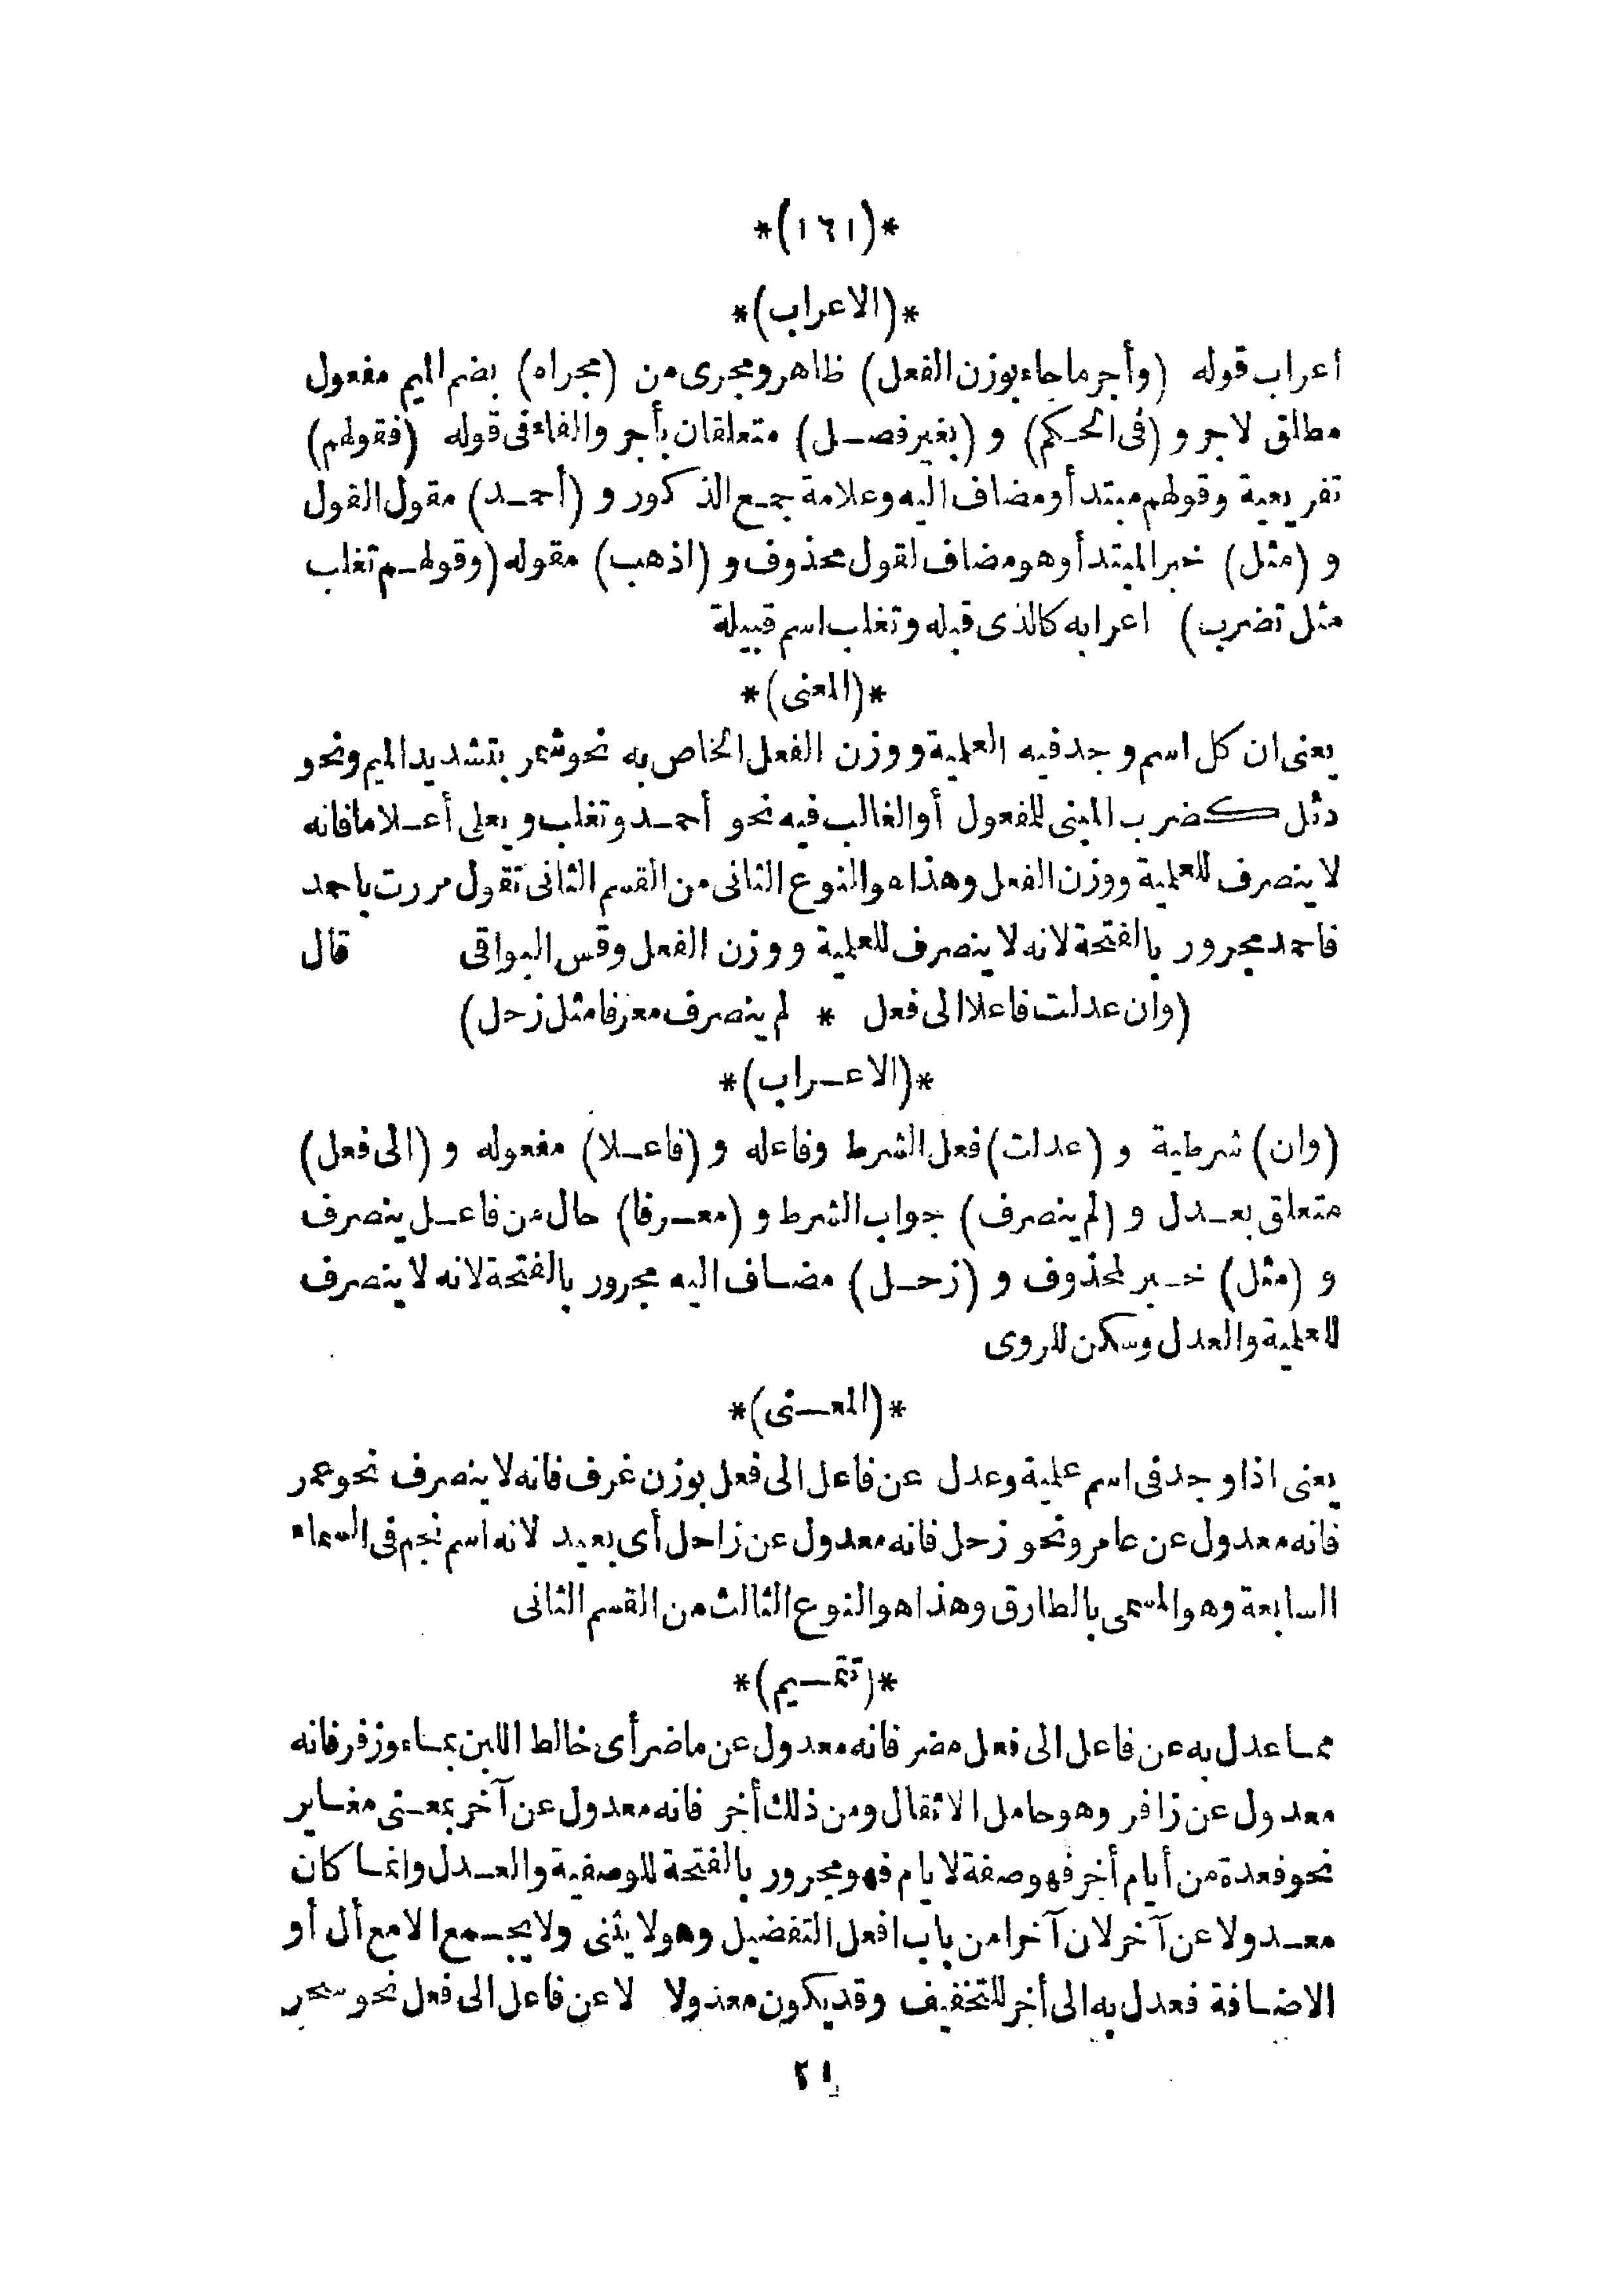 *(١٦١)*
*(الاعراب)*
اعراب قوله (وأجر ماجاء بوزن الفعل) ظاهر ومجرى من (مجراه) بضم الميم مفعول
مطلق لاجر و (فى الحكم) و (بغير فصل) متعلقان بأجر والفاء فى قوله (فقولهم)
تفريعية وقولهم مبتدأ ومضاف اليه وعلامة جمع الذكور و (أحمد) مقول القول
و (مثل) خبر المبتدأ وهو مضاف لقول محذوف و (اذهب) مقوله (وقولهم تغلب
مثل تضرب) اعرابه كالذى قبله وتغلب اسم قبيلة
*(المعنى)*
يعنى ان كل اسم وجد فيه العلمية ووزن الفعل الخاص به نحو شمر بتشديد الميم ونحو
دئل كضرب المبنى للمفعول أو الغالب فيه نحو أحمد وتغلب ويعلى أعلاما فانه
لا ينصرف للعلمية ووزن الفعل وهذا هو النوع الثانى من القسم الثانى تقول مررت باحمد
فاحمد مجرور بالفتحة لانه لا ينصرف للعلمية ووزن الفعل وقس البواقى قال
(وان عدلت فاعلا الى فعل * لم ينصرف معرفا مثل زحل)
*(الاعراب)*
(وان) شرطية و (عدلت) فعل الشرط وفاعله و (فاعلا) مفعوله و (الى فعل)
متعلق بعدل و (لم ينصرف) جواب الشرط و (معرفا) حال من فاعل ينصرف
و (مثل) خبر لمحذوف و (زحل) مضاف اليه مجرور بالفتحة لانه لا ينصرف
للعلمية والعدل وسكن للروى
*(المعنى)*
يعنى اذا وجد فى اسم علمية وعدل عن فاعل الى فعل بوزن غرف فانه لا ينصرف نحو عمر
فانه معدول عن عامر ونحو زحل فانه معدول عن زاحل أى بعيد لانه اسم نجم فى السماء
السابعة وهو المسمى بالطارق وهذا هو النوع الثالث من القسم الثانى
*(تتميم)*
مما عدل به عن فاعل الى فعل مضر فانه معدول عن ماضر أى خالط اللبن بماء وزفر فانه
معدول عن زافر وهو حامل الاثقال ومن ذلك أخر فانه معدول عن آخر بمعنى مغاير
نحو فعدة من أيام أخر فهو صفة لايام فهو مجرور بالفتحة للوصفية والعدل وانما كان
معدولا عن آخر لان آخرا من باب افعل التفضيل وهو لا يثنى ولا يجمع الا مع أل أو
الاضافة فعدل به الى أخر للتخفيف وقد يكون معدولا لا عن فاعل الى فعل نحو سحر
٢١